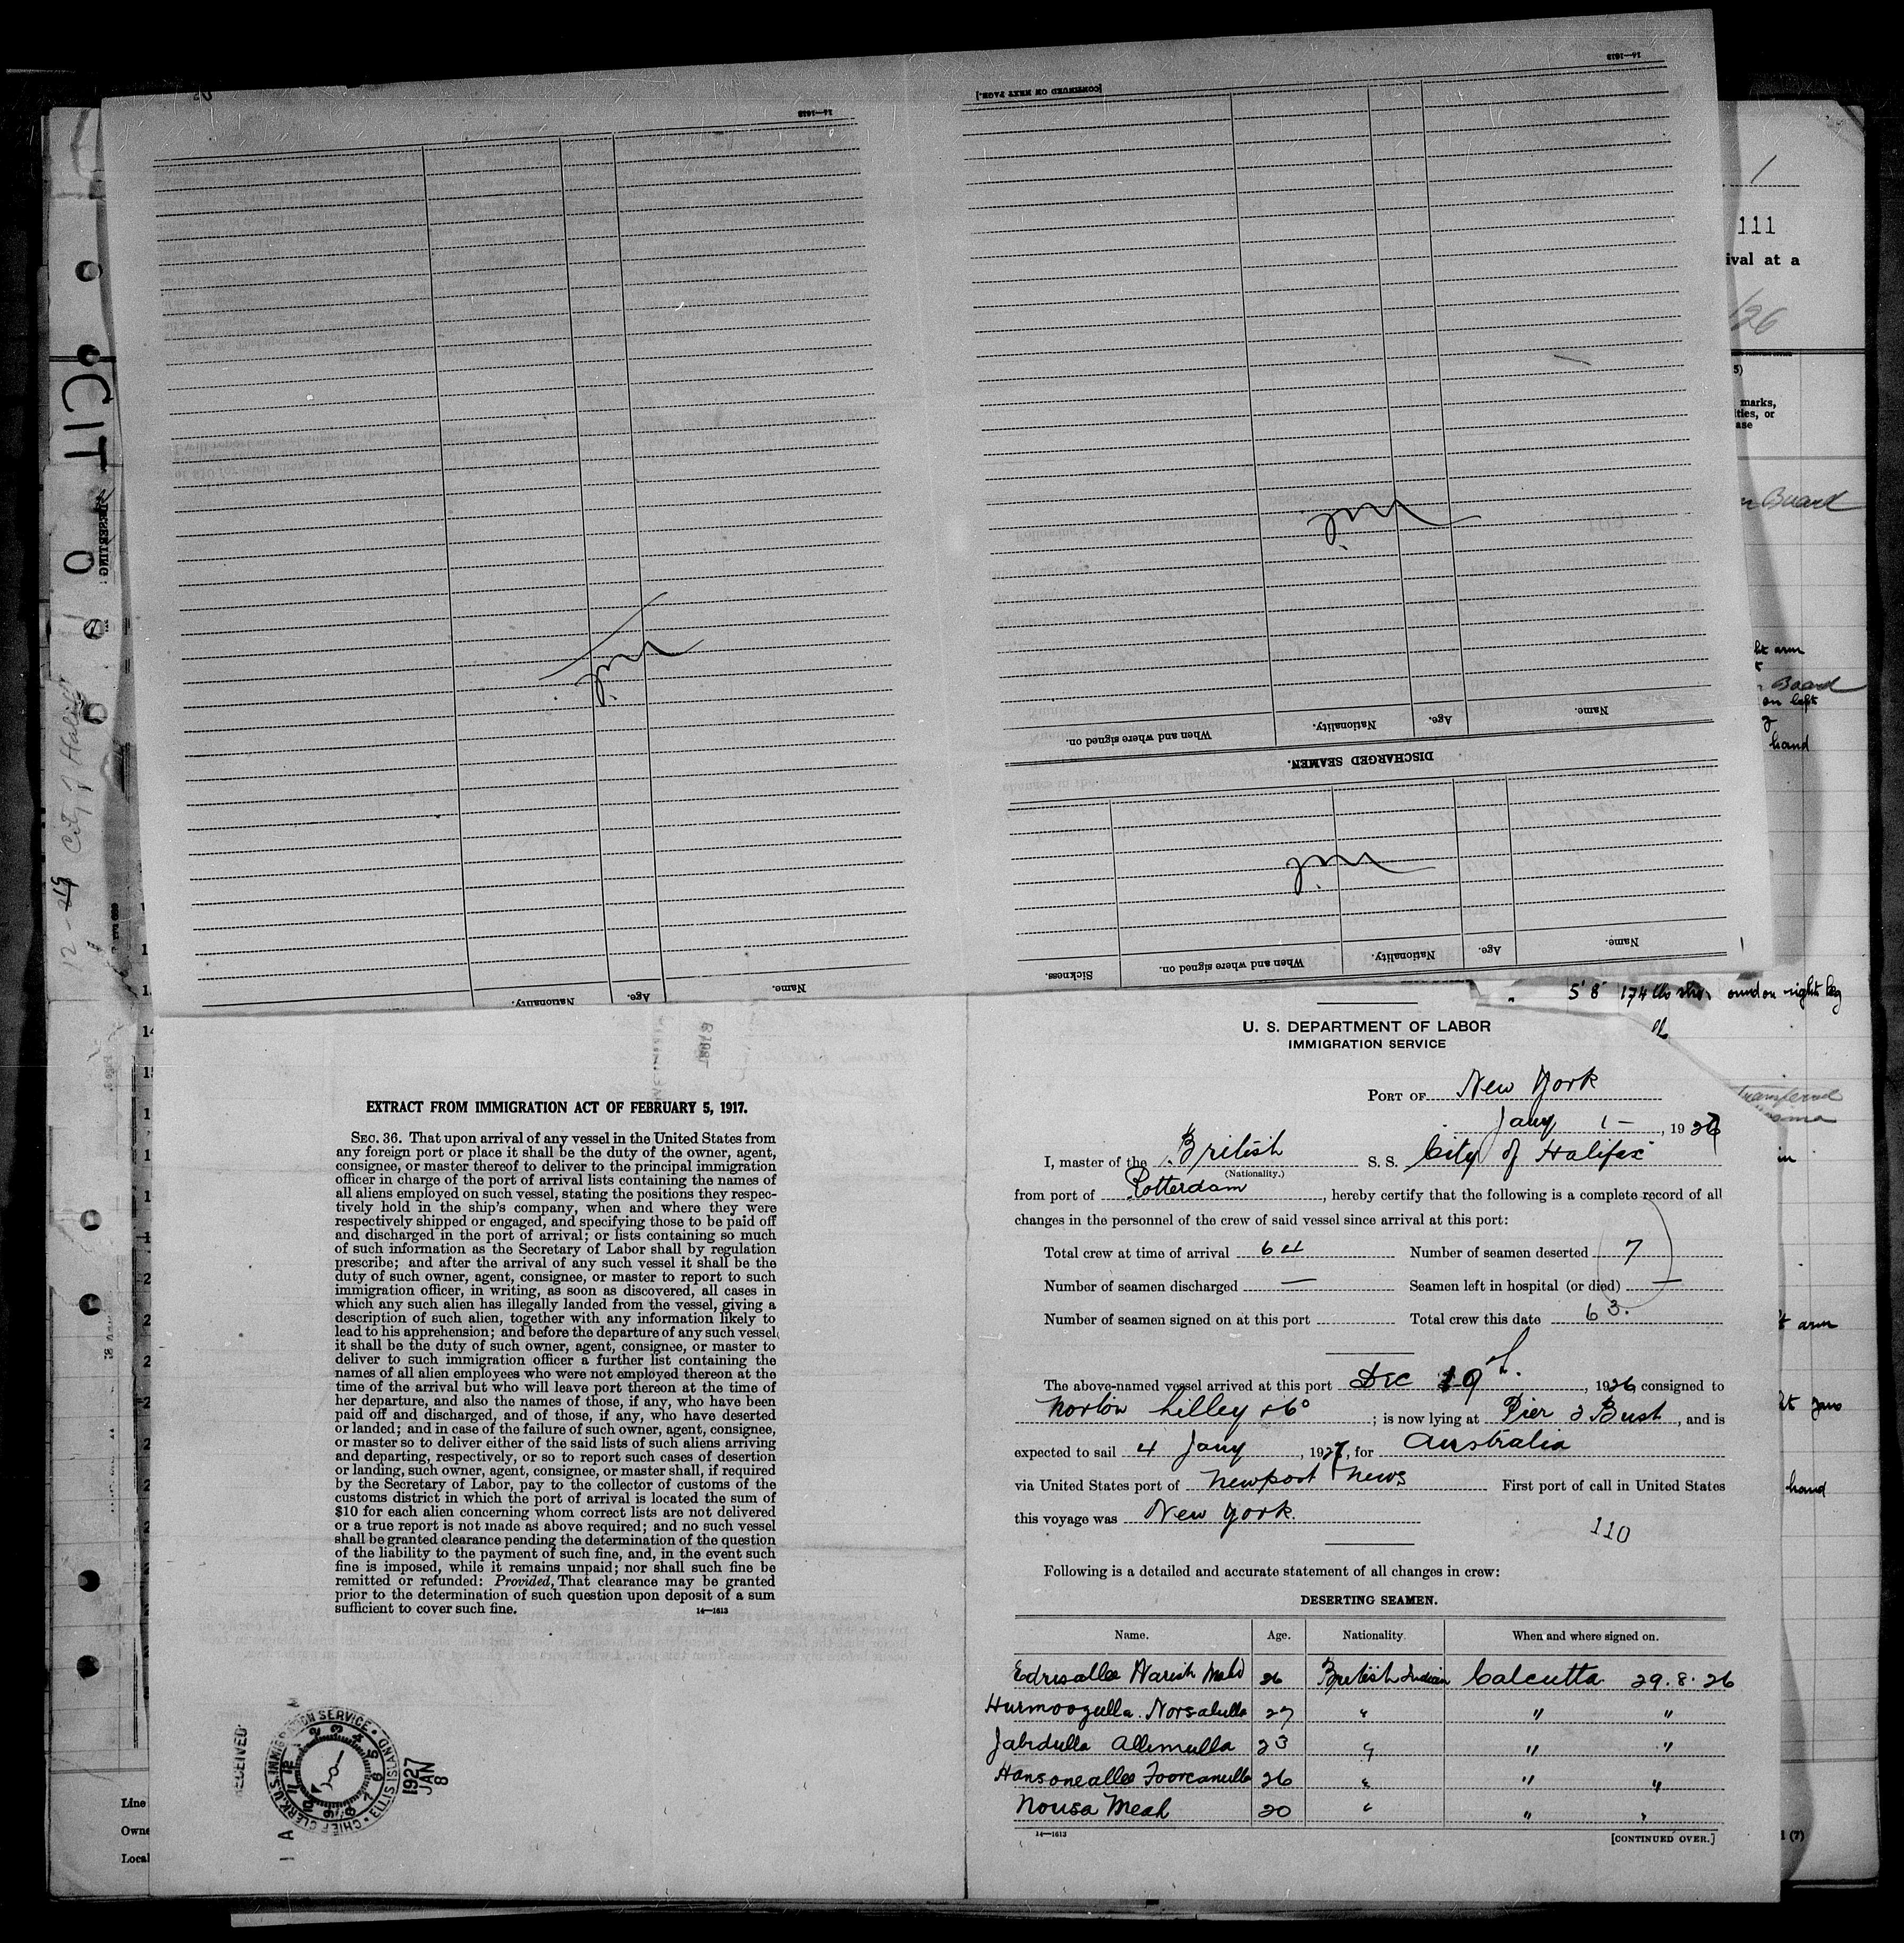 14—1613
[CONTINUED ON NEXT PAGE.]
14—1613
1
111
ival at a
/26
marks,
ities, or
ase
Board
CIT
O
City of Halifax
12 -
ht arm
Board
on left
hand
Name.
Age.
Nationality.
When and where signed on.
DISCHARGED SEAMEN.
nil
nil
nil
Name.
Age.
Nationality.
When and where signed on.
Sickness.
Name.
Age.
Nationality.
5' 8" 174 lbs
on right leg
EXTRACT FROM IMMIGRATION ACT OF FEBRUARY 5, 1917.
SEC. 36. That upon arrival of any vessel in the United States from
any foreign port or place it shall be the duty of the owner, agent,
consignee, or master thereof to deliver to the principal immigration
officer in charge of the port of arrival lists containing the names of
all aliens employed on such vessel, stating the positions they respec-
tively hold in the ship's company, when and where they were
respectively shipped or engaged, and specifying those to be paid off
and discharged in the port of arrival; or lists containing so much
of such information as the Secretary of Labor shall by regulation
prescribe; and after the arrival of any such vessel it shall be the
duty of such owner, agent, consignee, or master to report to such
immigration officer, in writing, as soon as discovered, all cases in
which any such alien has illegally landed from the vessel, giving a
description of such alien, together with any information likely to
lead to his apprehension; and before the departure of any such vessel,
it shall be the duty of such owner, agent, consignee, or master to
deliver to such immigration officer a further list containing the
names of all alien employees who were not employed thereon at the
time of the arrival but who will leave port thereon at the time of
her departure, and also the names of those, if any, who have been
paid off and discharged, and of those, if any, who have deserted
or landed; and in case of the failure of such owner, agent, consignee,
or master so to deliver either of the said lists of such aliens arriving
and departing, respectively, or so to report such cases of desertion
or landing, such owner, agent, consignee, or master shall, if required
by the Secretary of Labor, pay to the collector of customs of the
customs district in which the port of arrival is located the sum of
$10 for each alien concerning whom correct lists are not delivered
or a true report is not made as above required; and no such vessel
shall be granted clearance pending the determination of the question
of the liability to the payment of such fine, and, in the event such
fine is imposed, while it remains unpaid; nor shall such fine be
remitted or refunded: Provided, That clearance may be granted
prior to the determination of such question upon deposit of a sum
sufficient to cover such fine.
14—1613
RECEIVED
CHIEF CLERK U.S. IMMIGRATION SERVICE • ELLIS ISLAND
1927
JAN
8
Line
Owne
Local
U. S. DEPARTMENT OF LABOR
IMMIGRATION SERVICE
PORT OF New York
Jany 1 —, 1927
I, master of the British S. S. City of Halifax
(Nationality.)
from port of Rotterdam, hereby certify that the following is a complete record of all
changes in the personnel of the crew of said vessel since arrival at this port:
Total crew at time of arrival 64 Number of seamen deserted 7
Number of seamen discharged — Seamen left in hospital (or died) —
Number of seamen signed on at this port Total crew this date 63.
The above-named vessel arrived at this port Dec 19th, 1926, consigned to
Norton Lilley & Co; is now lying at Pier 2 Bush, and is
expected to sail 4 Jany, 1927, for Australia
via United States port of Newport News First port of call in United States
this voyage was New York.
110
Following is a detailed and accurate statement of all changes in crew:
DESERTING SEAMEN.
Name. Age. Nationality. When and where signed on.
Edrisallee Warish Mahd 26 British Indian Calcutta 29.8.26
Hurmoozulla Norsalulla 27 " " "
Jabdulla Allimulla 23 " " "
Hansoneallee Toorcanulla 26 " " "
Nousa Meah 20 " " "
14—1613
[CONTINUED OVER.]
Transferred
arm
hand
(7)